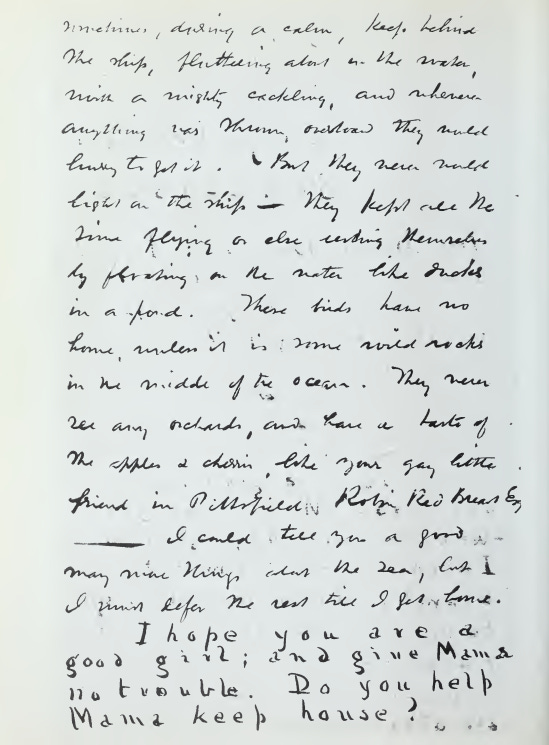 sometimes, during a calm, keep behind
the ship, fluttering about in the water,
with a mighty cackling, and whenever
anything was thrown overboard they would
hurry to get it. But they never would
light on the ship — they kept all the
time flying or else resting themselves
by floating on the water like ducks
in a pond. These birds have no
home, unless it is some wild rocks
in the middle of the ocean. They never
see any orchards, and have a taste of
the apples & cherries, like your gay little
friend in Pittsfield Robin Red Breast Esq
— I could tell you a good
many more things about the sea, but I
I must defer the rest till I get home.
I hope you are a
good girl; and give Mama
no trouble. Do you help
Mama keep house?